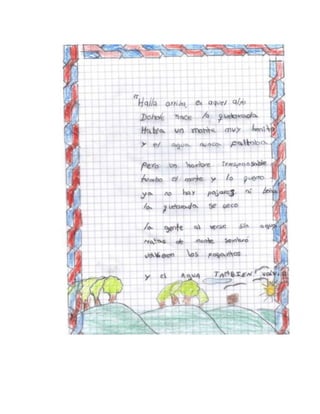 "Halla arriba, en aquel alto
Donde nace la quebrada
Habia un monte muy bonito
y el agua nunca faltaba
Pero un hombre irresponsable
tumbo el monte y lo quemo
ya no hay pajaros ni
la quebrada se seco
la gente al verse sin agua
matas de monte sembro
los pajaritos
y el AGUA TAMBIEN